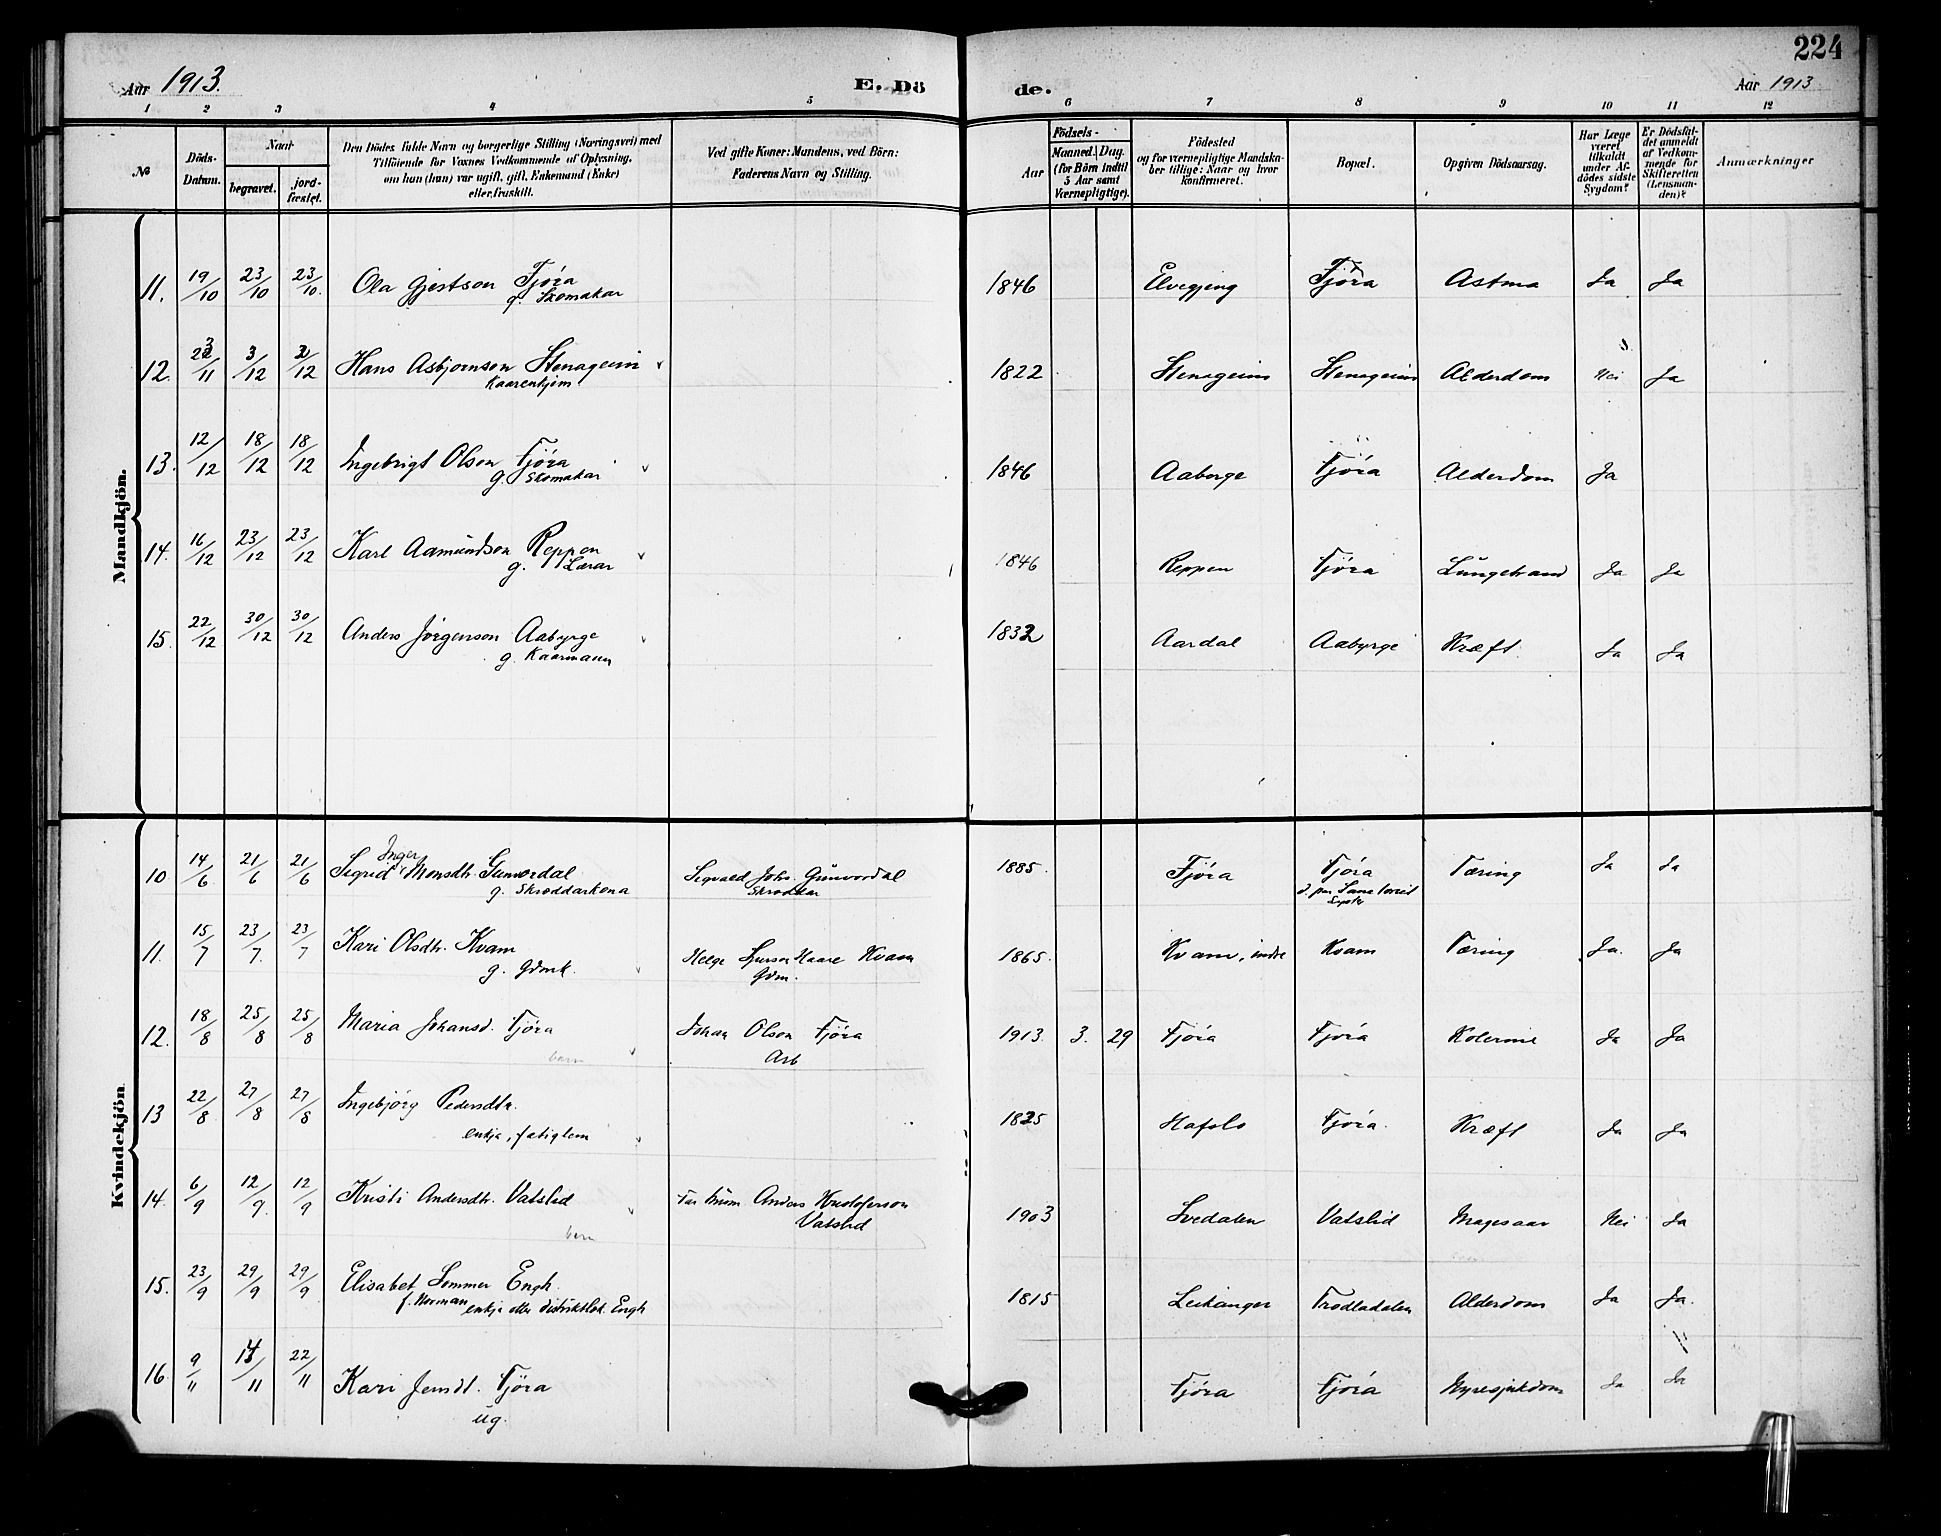 224
Aar 1913.
E. Dö
de.
Aar 1913
1 2 3 4 5 6 7 8 9 10 11 12
№
Döds-Datum.
Naar
begravet.
jord-fæstet.
Den Dödes fulde Navn og borgerlige Stilling (Næringsvei) med
Tilföiende for Voxnes Vedkommende af Oplysning,
om han (hun) var ugift, gift, Enkemand (Enke)
eller fraskilt.
Ved gifte Koner: Mandens, ved Börn:
Faderens Navn og Stilling.
Födsels-
Aar
Maaned. Dag.
(for Börn indtil
5 Aar samt
Værnepligtige).
Födested
og for værnepligtige Mandska-
ber tillige: Naar og hvor
konfirmeret.
Bopæl.
Opgiven Dödsaarsag.
Har Læge
været
tilkaldt
under Af-
dödes sidste
Sygdom?
Er Dödsfal-
det anmeldt
af Vedkom-
mende for
Skifteretten
(Lensman-
den)?
Anmærkninger
Mandkjön.
11. 19/10 23/10 23/10. Ola Gjertson Fjöra 1846 Elvegjeng Fjöra Astma Ja Ja
g. Skomakar
12. 23/11 3/12 3/12 Hans Asbjornson Stenageim 1822 Stenageim Stenageim Alderdom Nei Ja
Kaarenkjem
13. 12/12 18/12 18/12 Ingebrigt Olson Fjöra 1846 Aaberge Fjöra Alderdom Ja
g. Skomakar
14. 16/12 23/12 23/12 Karl Aamundson Reppen 1846 Reppen Fjöra Lungebrand Ja Ja
g. Lærar
15. 22/12 30/12 30/12 Anders Jörgenson Aabyrge 1832 Aardal Aabyrge Kræft. Ja Ja
g. Kaarmann
Kvindekjön
10 14/6 21/6 21/6 Sigrid Inger Monsdtr. Gunvordal Sigvald Johs. Gunvordal 1885. Fjöra Fjöra Tæring Ja Ja
g. Skræddarkona Skræddar
11. 15/7 23/7. 23/7 Kari Olsdtr. Kvam Helge Haare Kvam 1865. Kvam, indre Kvam Tæring Ja. Ja
g. Gdmk. Gdm.
12. 18/8 25/8 25/8 Maria Johansd. Fjöra Johan Olson Fjöra 1913. 3. 29 Fjöra Fjöra Kolerine Ja Ja
barn Arb
13 22/8 27/8 27/8 Ingebjörg Pedersdtr. 1825 Hafslo Fjöra. Kræft Ja Ja
enkja, fatiglem
14. 6/9 12/9. 12/9 Kristi Andersdtr. Vatslid Anders Kristoferson 1903 Svedalen Vatslid Magesaar Nei Ja
barn Vatslid
15. 23/9 29/9 29/9 Elisabet Sommer Engh. 1815 Leikanger Trodladalen Alderdom Ja Ja.
f. Norman enkja etter distriktslæk. Engh
16. 9/11 /11 22/11 Kari Jensdt. Fjöra Fjöra Fjöra Nyresjukdom Ja Ja
ug.